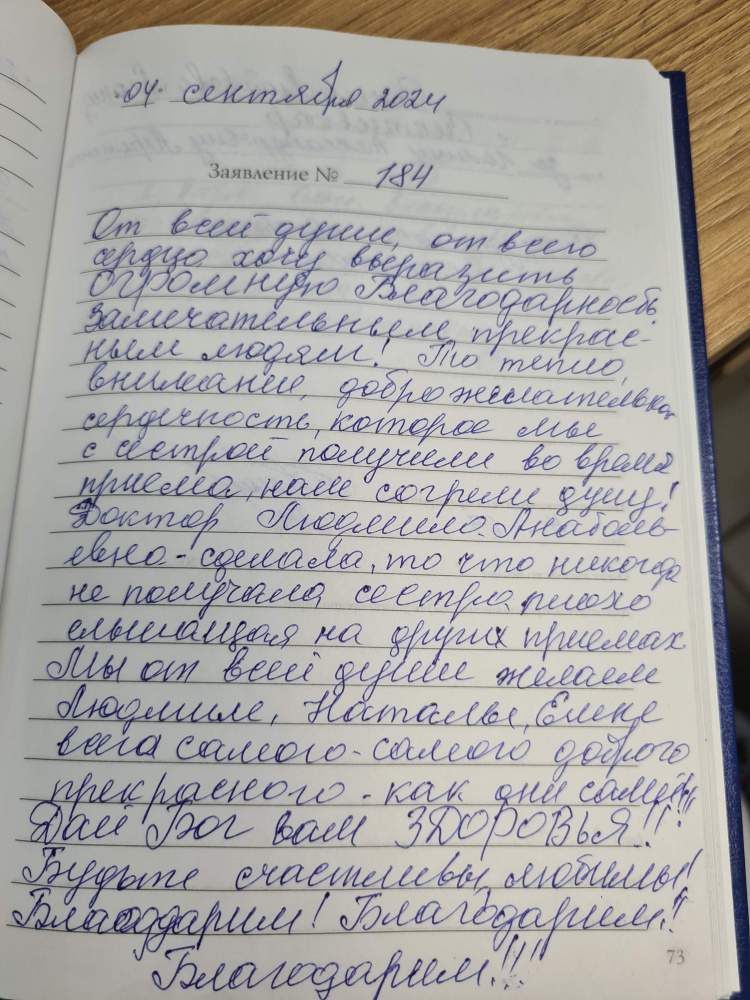 04 сентября 2024
Заявление № 184
От всей души, от всего
сердца хочу выразить
огромную Благодарность
замечательным прекрас-
ным людям! То тепло,
внимание, доброжелательность
сердечность, которое мы
с сестрой получили во время
приема, нам согрели душу!
Доктор Людмила Анатоль-
евна - сделала, то что никогда
не получала сестра плохо
слышащая на других приемах
Мы от всей души желаем
Людмиле, Наталье, Елене
всега самого-самого доброго
прекрасного - как они сами!!!
Дай Бог вам ЗДОРОВЬЯ!!!
Будьте счастливы, любимы!
Благодарим! Благодарим!!
Благодарим!!!
73